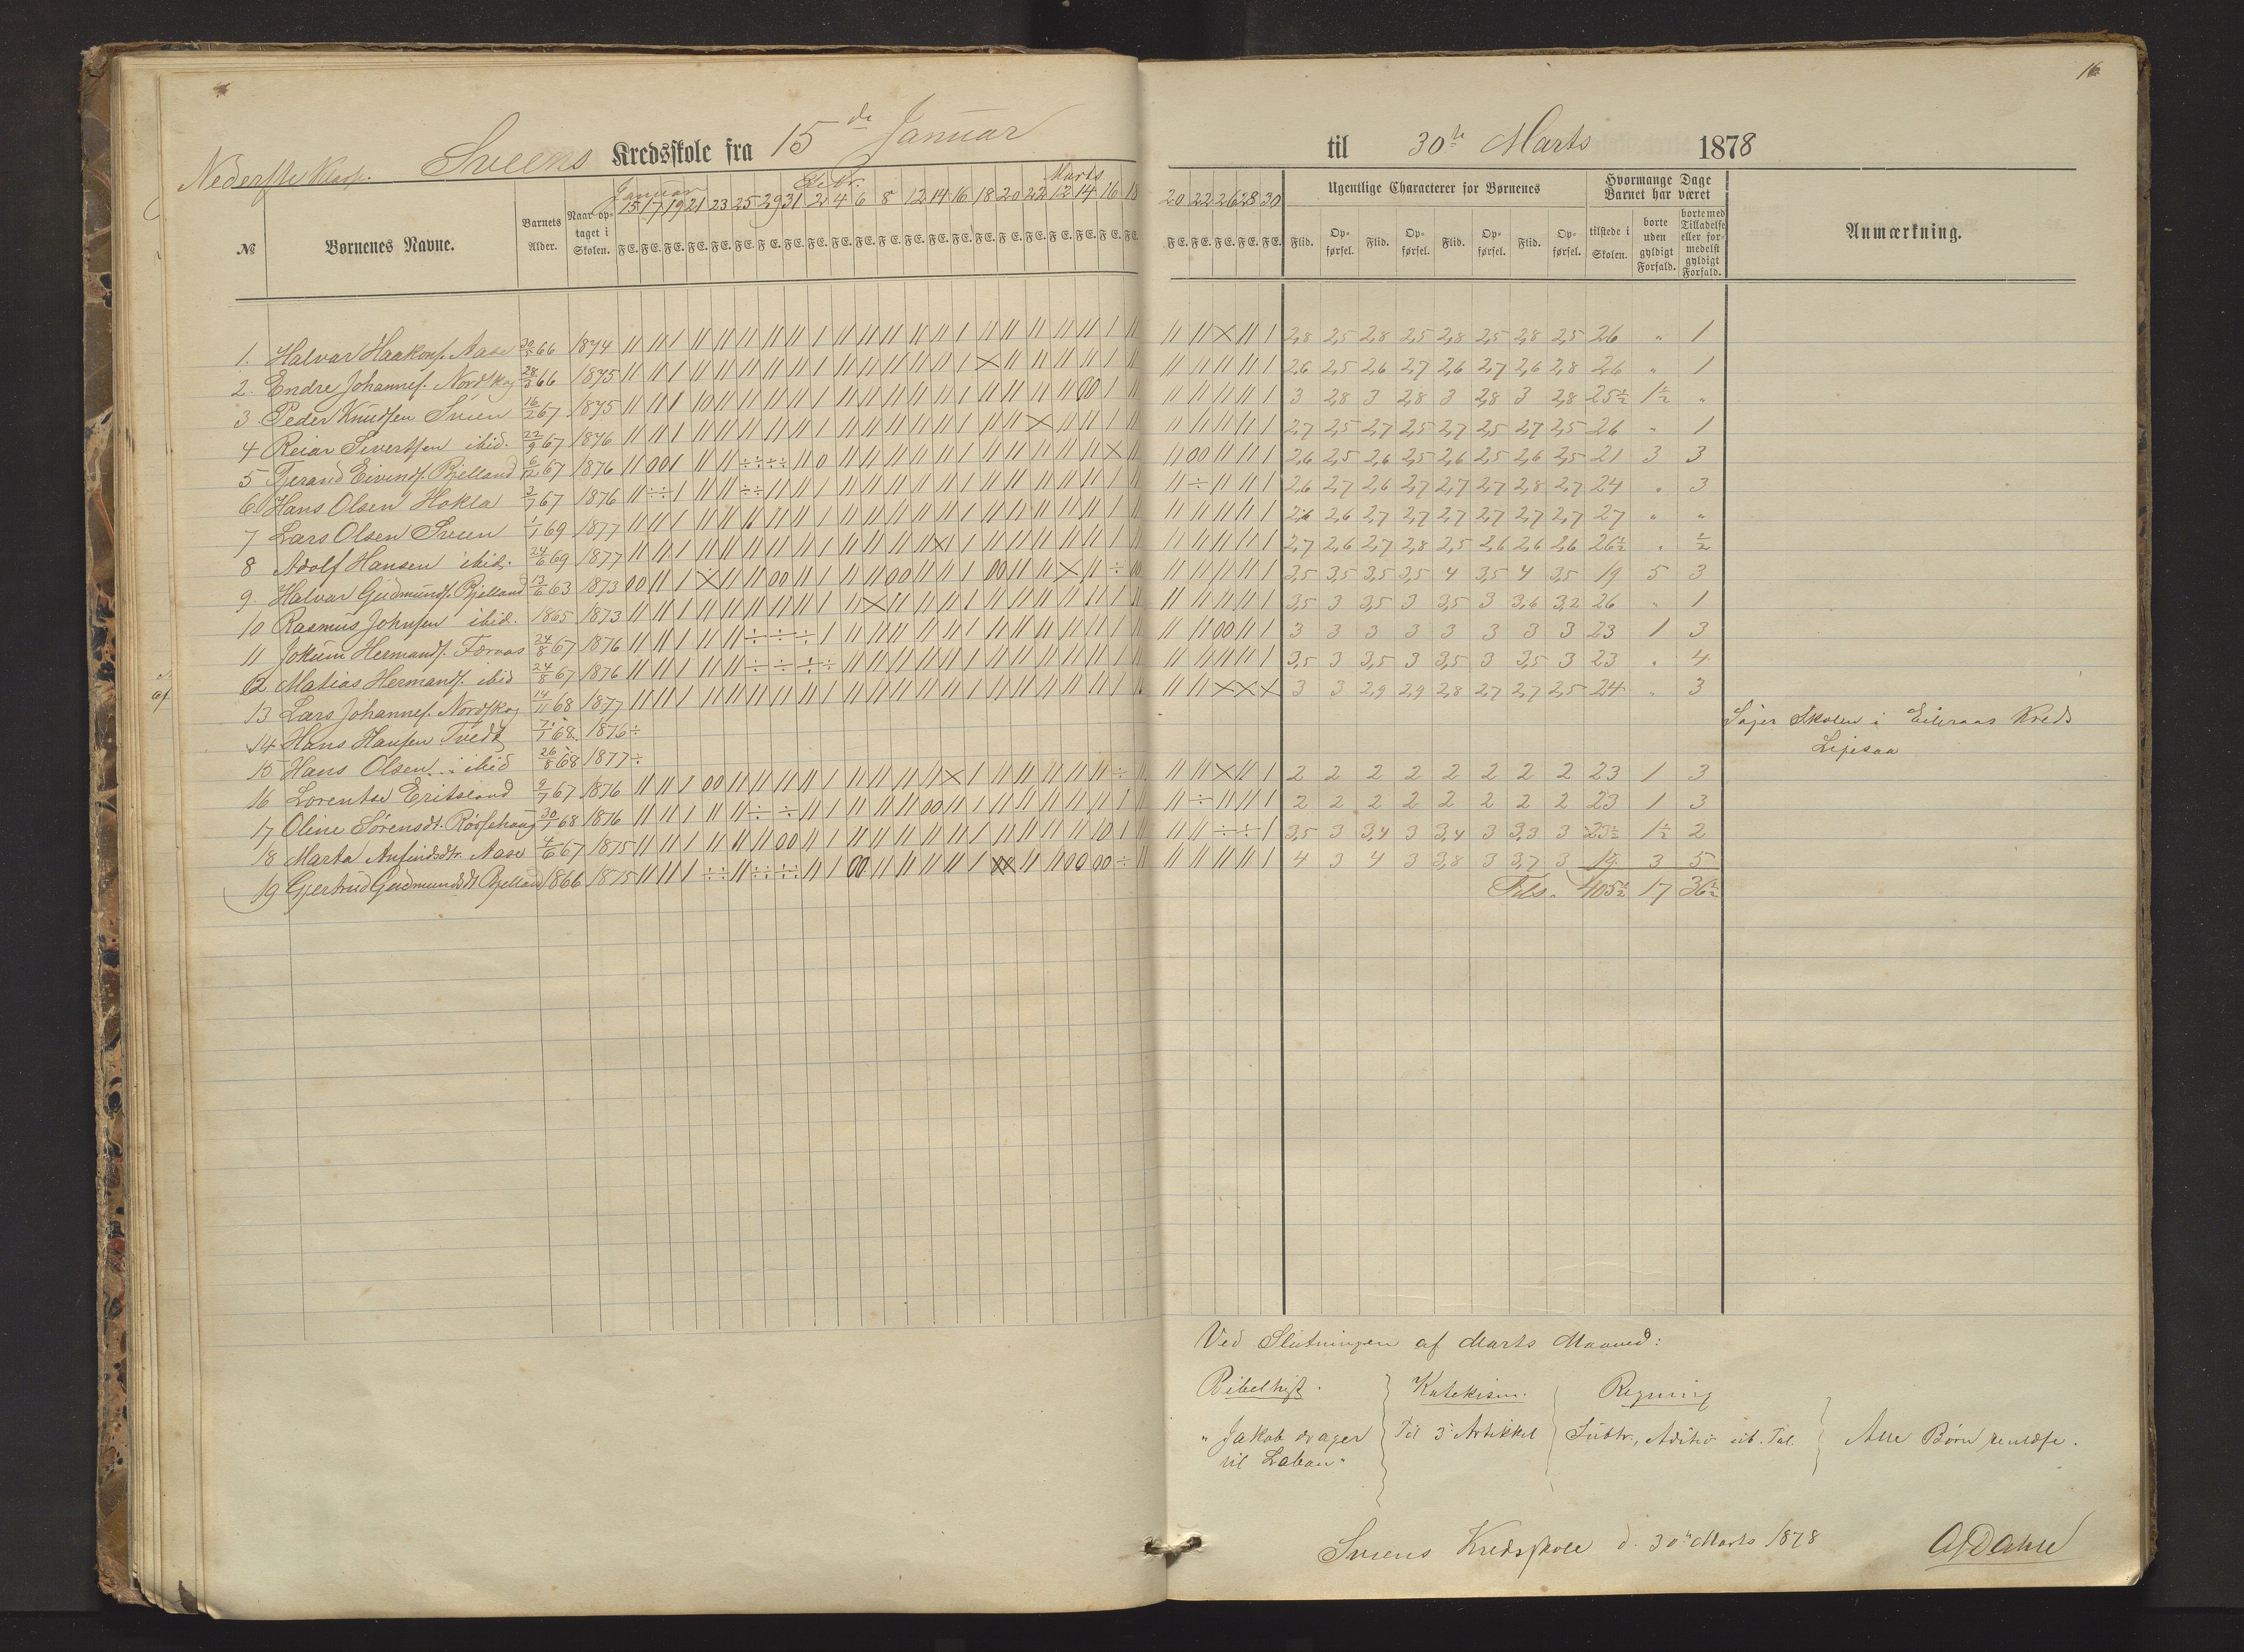 16
Nederste Klasse. Sveens Kredsskole fra 15de Januar til 30te Marts 1878
Januar Febr. Marts
15 17 19 21 23 25 29 31 2 4 6 8 12 14 16 18 20 22 12 14 16 18 20 22 26 28 30
№ Børnenes Navne. Barnets Alder. Naar optaget i Skolen. F E. F E. F E. F E. F E. F E. F E. F E. F E. F E. F E. F E. F E. F E. F E. F E. F E. F E. F E. F E. F E. F E. F E. F E. F E. F E. F E.
Ugentlige Characterer for Børnenes Flid. Opførsel. Flid. Opførsel. Flid. Opførsel. Flid. Opførsel.
Hvormange Dage Barnet har været tilstede i Skolen. borte uden gyldigt Forfald. borte med Tilladelse eller formedelst gyldigt Forfald. Anmærkning.
1. Halvar Haakons. Aase 29/5 66 1874 2,8 2,5 2,8 2,5 2,8 2,5 2,8 2,5 26 " 1
2. Endre Johannes. Nordskog 28/3 66 1875 2,6 2,5 2,6 2,7 2,6 2,7 2,6 2,8 26 " 1
3 Peder Knudsen Sveen 16/2 67 1875 3 2,8 3 2,8 3 2,8 3 2,8 25½ 1½ "
4 Reiar Sivertsen ibid. 22/9 67 1876 2,7 2,5 2,7 2,5 2,7 2,5 2,7 2,5 26 " 1
5 Tjerand Eivinds. Bjelland 6/12 67 1876 2,6 2,5 2,6 2,5 2,6 2,5 2,6 2,5 21 3 3
6. Hans Olsen Hokla 3/7 67 1876 2,6 2,7 2,6 2,7 2,7 2,7 2,8 2,7 24 " 3
7 Lars Olsen Sveen 1/1 69 1877 2,6 2,6 2,7 2,7 2,7 2,7 2,7 2,7 27 " "
8 Adolf Hansen ibid. 24/6 69 1877 2,7 2,6 2,7 2,8 2,5 2,6 2,6 2,6 26½ " ½
9. Halvar Gudmunds. Bjelland 13/6 63 1873 3,5 3,5 3,5 3,5 4 3,5 4 3,5 19 5 3
10 Rasmus Johnsen ibid. 1865 1873 3,5 3 3,5 3 3,5 3 3,6 3,2 26 " 1
11 Jokum Hermands. Færaas 24/8 67 1876 3 3 3 3 3 3 3 3 23 1 3
12 Matias Hermands. ibid 24/8 67 1876 3,5 3 3,5 3 3,5 3 3,5 3 23 " 4
13 Lars Johannes. Nordskog 14/11 68 1877 3 3 2,9 2,9 2,8 2,7 2,7 2,5 24 " 3
14 Hans Hansen Tvedt 7/1 68 1876 ÷ Søger Skolen i Eileraas Kreds
15 Hans Olsen ibid 26/8 68 1877 ÷
16 Lorentse Eritsland 9/7 67 1876 2 2 2 2 2 2 2 2 23 1 3
17 Oline Sørensdt. Røssehaug 30/1 68 1876 2 2 2 2 2 2 2 2 23 1 3
18 Marta Anfindsdtr. Aase 4/6 67 1875 3,5 3 3,4 3 3,4 3 3,3 3 23½ 1½ 2
19 Gjertrud Gudmundsdt. Bjelland 1866 1875 4 3 4 3 3,8 3 3,7 3 19 3 5
Tils. 405½ 17 36½
Ved Slutningen af Marts Maaned:
Bibelhist. Katekism. Regning
"Jakob drager til Laban" Til 3. Artikkel Subtr., Aditio ub. Tal. Alle Børn
Sveens Kredsskole d. 30te Marts 1878